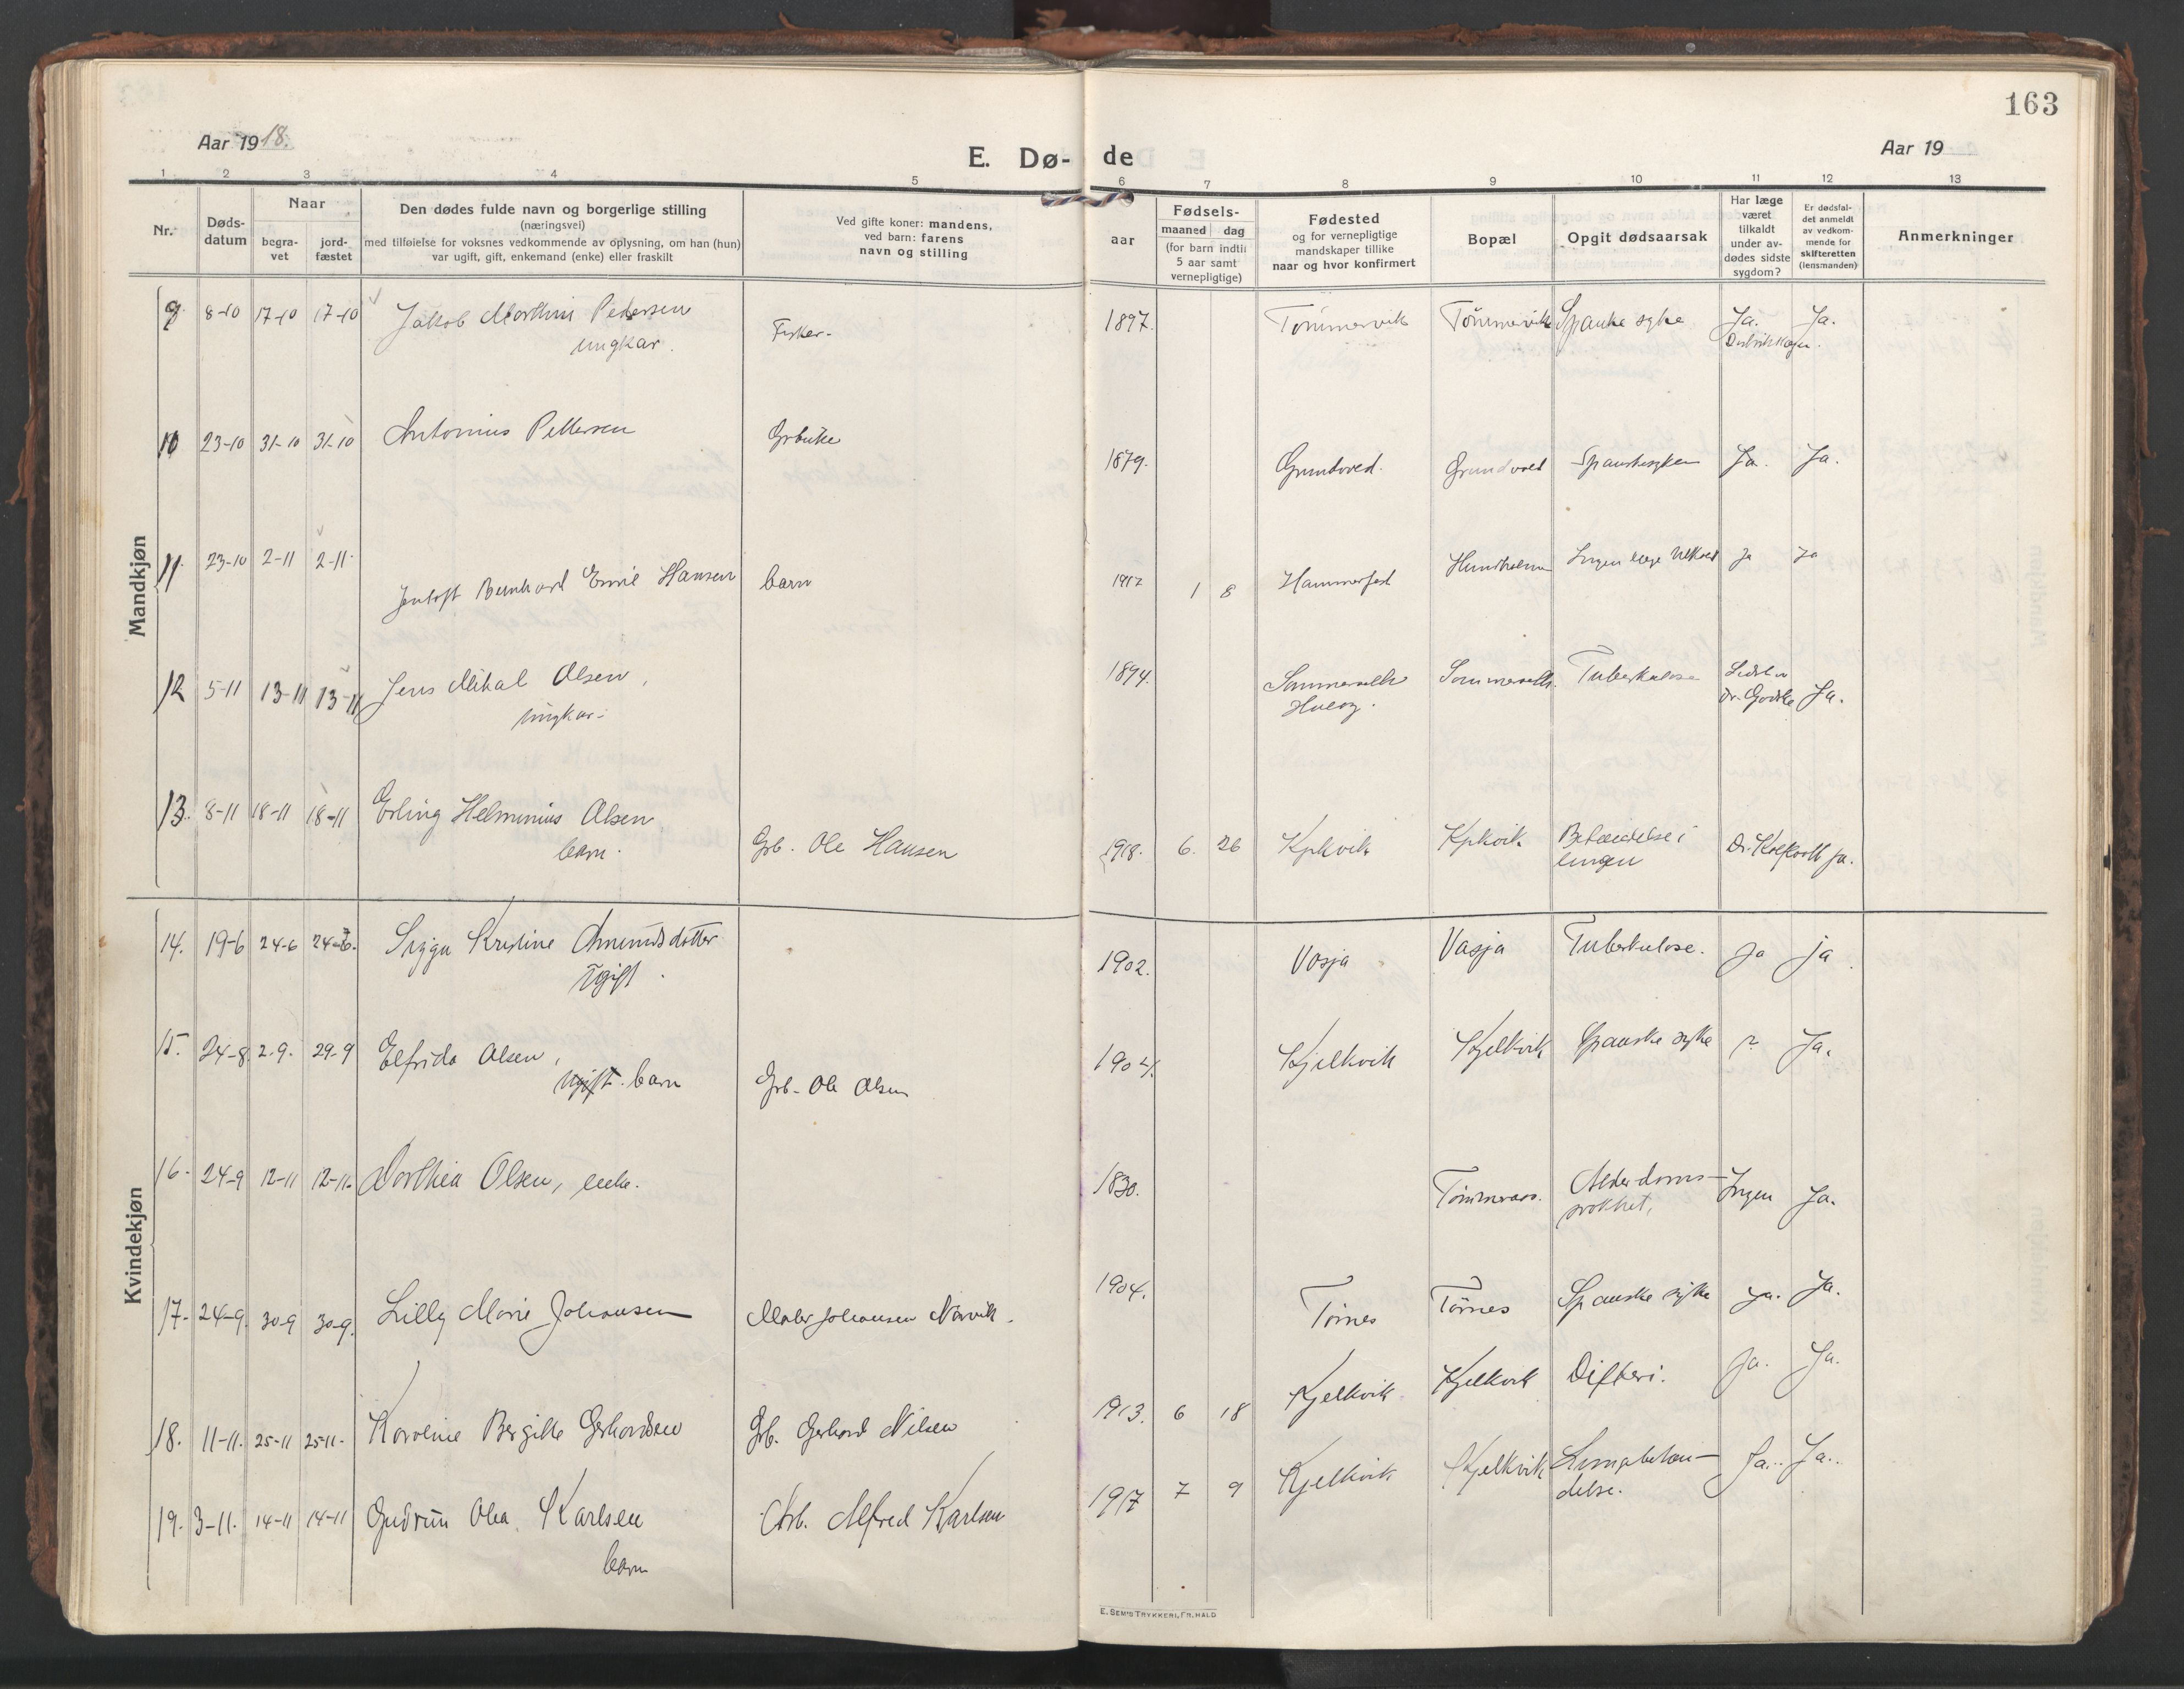 163
Aar 1918.
E. Dø- de
Aar 19
1 2 3 4 5 6 7 8 9 10 11 12 13
Nr.
Døds-
datum
Naar
begra-
vet
jord-
fæstet
Den dødes fulde navn og borgerlige stilling
(næringsvei)
med tilføielse for voksnes vedkommende av oplysning, om han (hun)
var ugift, gift, enkemand (enke) eller fraskilt
Ved gifte koner: mandens,
ved barn: farens
navn og stilling
Fødsels-
aar
maaned dag
(for barn indtil
5 aar samt
vernepligtige)
Fødested
og for vernepligtige
mandskaper tillike
naar og hvor konfirmert
Bopæl
Opgit dødsaarsak
Har læge
været
tilkaldt
under av-
dødes sidste
sygdom?
Er dødsfal-
det anmeldt
av vedkom-
mende for
skifteretten
(lensmanden)
Anmerkninger
Mandkjøn
9. 8-10 17-10 17-10 Jakob Morthin Pedersen Fisker- 1897. Tømmervik Tømmervik Spanske syke Ja. Ja.
ungkar.
10 23-10 31-10 31-10 Antonius Pettersen 1879. Grundvad Spanskesyken Ja. Ja.
11. 23-10 2-11 2-11. Bernhard Emil Hansen barn 1917 1 8 Hammerfest Hundholmen Ingen læge Ja Ja
12 5-11 13-11 13-11 Jens Mikal Olsen, 1894. Tuberkulose Ja.
ungkar.
13. 8-11 18-11 18-11 Erling Helminius Olsen Grb. Ole Hansen 1918. 6. 26 Betændelse i Ja.
barn. lungen
Kvindekjøn
14. 19-6 24-6 24-6. Kristine Amundsdatter 1902. Vasja Vasja Tuberkulose. Ja Ja.
Ugift.
15. 24-8 2-9. 29-9 Elfrida Olsen, Grb. Ole Olsen 1904. Kjelkvik Kjelkvik Spanske syke ? Ja.
ugift. barn
16. 24-9 12-11 12-11. Dorthea Olsen, enke. 1830. Alderdoms- Ingen Ja.
svakhet,
17. 24-9. 30-9 30-9. Lilly Marie Johansen Maler Johansen Narvik. 1904. Tørnes Tørnes Spanske syke Ja. Ja.
18. 11-11. 25-11 25-11- Karoline Bergitte Gerhardsen Grb. Gerhard Nilsen 1913. 6 18 Kjelkvik Kjelkvik Difteri. Ja. Ja.
19. 3-11. 14-11 14-11 Gudrun Olea Karlsen Arb. Alfred Karlsen 1917 7 9 Kjelkvik Kjelkvik Lungebetæn- Ja.. Ja..
barn delse.
E. SEM'S TRYKKERI, FR.HALD